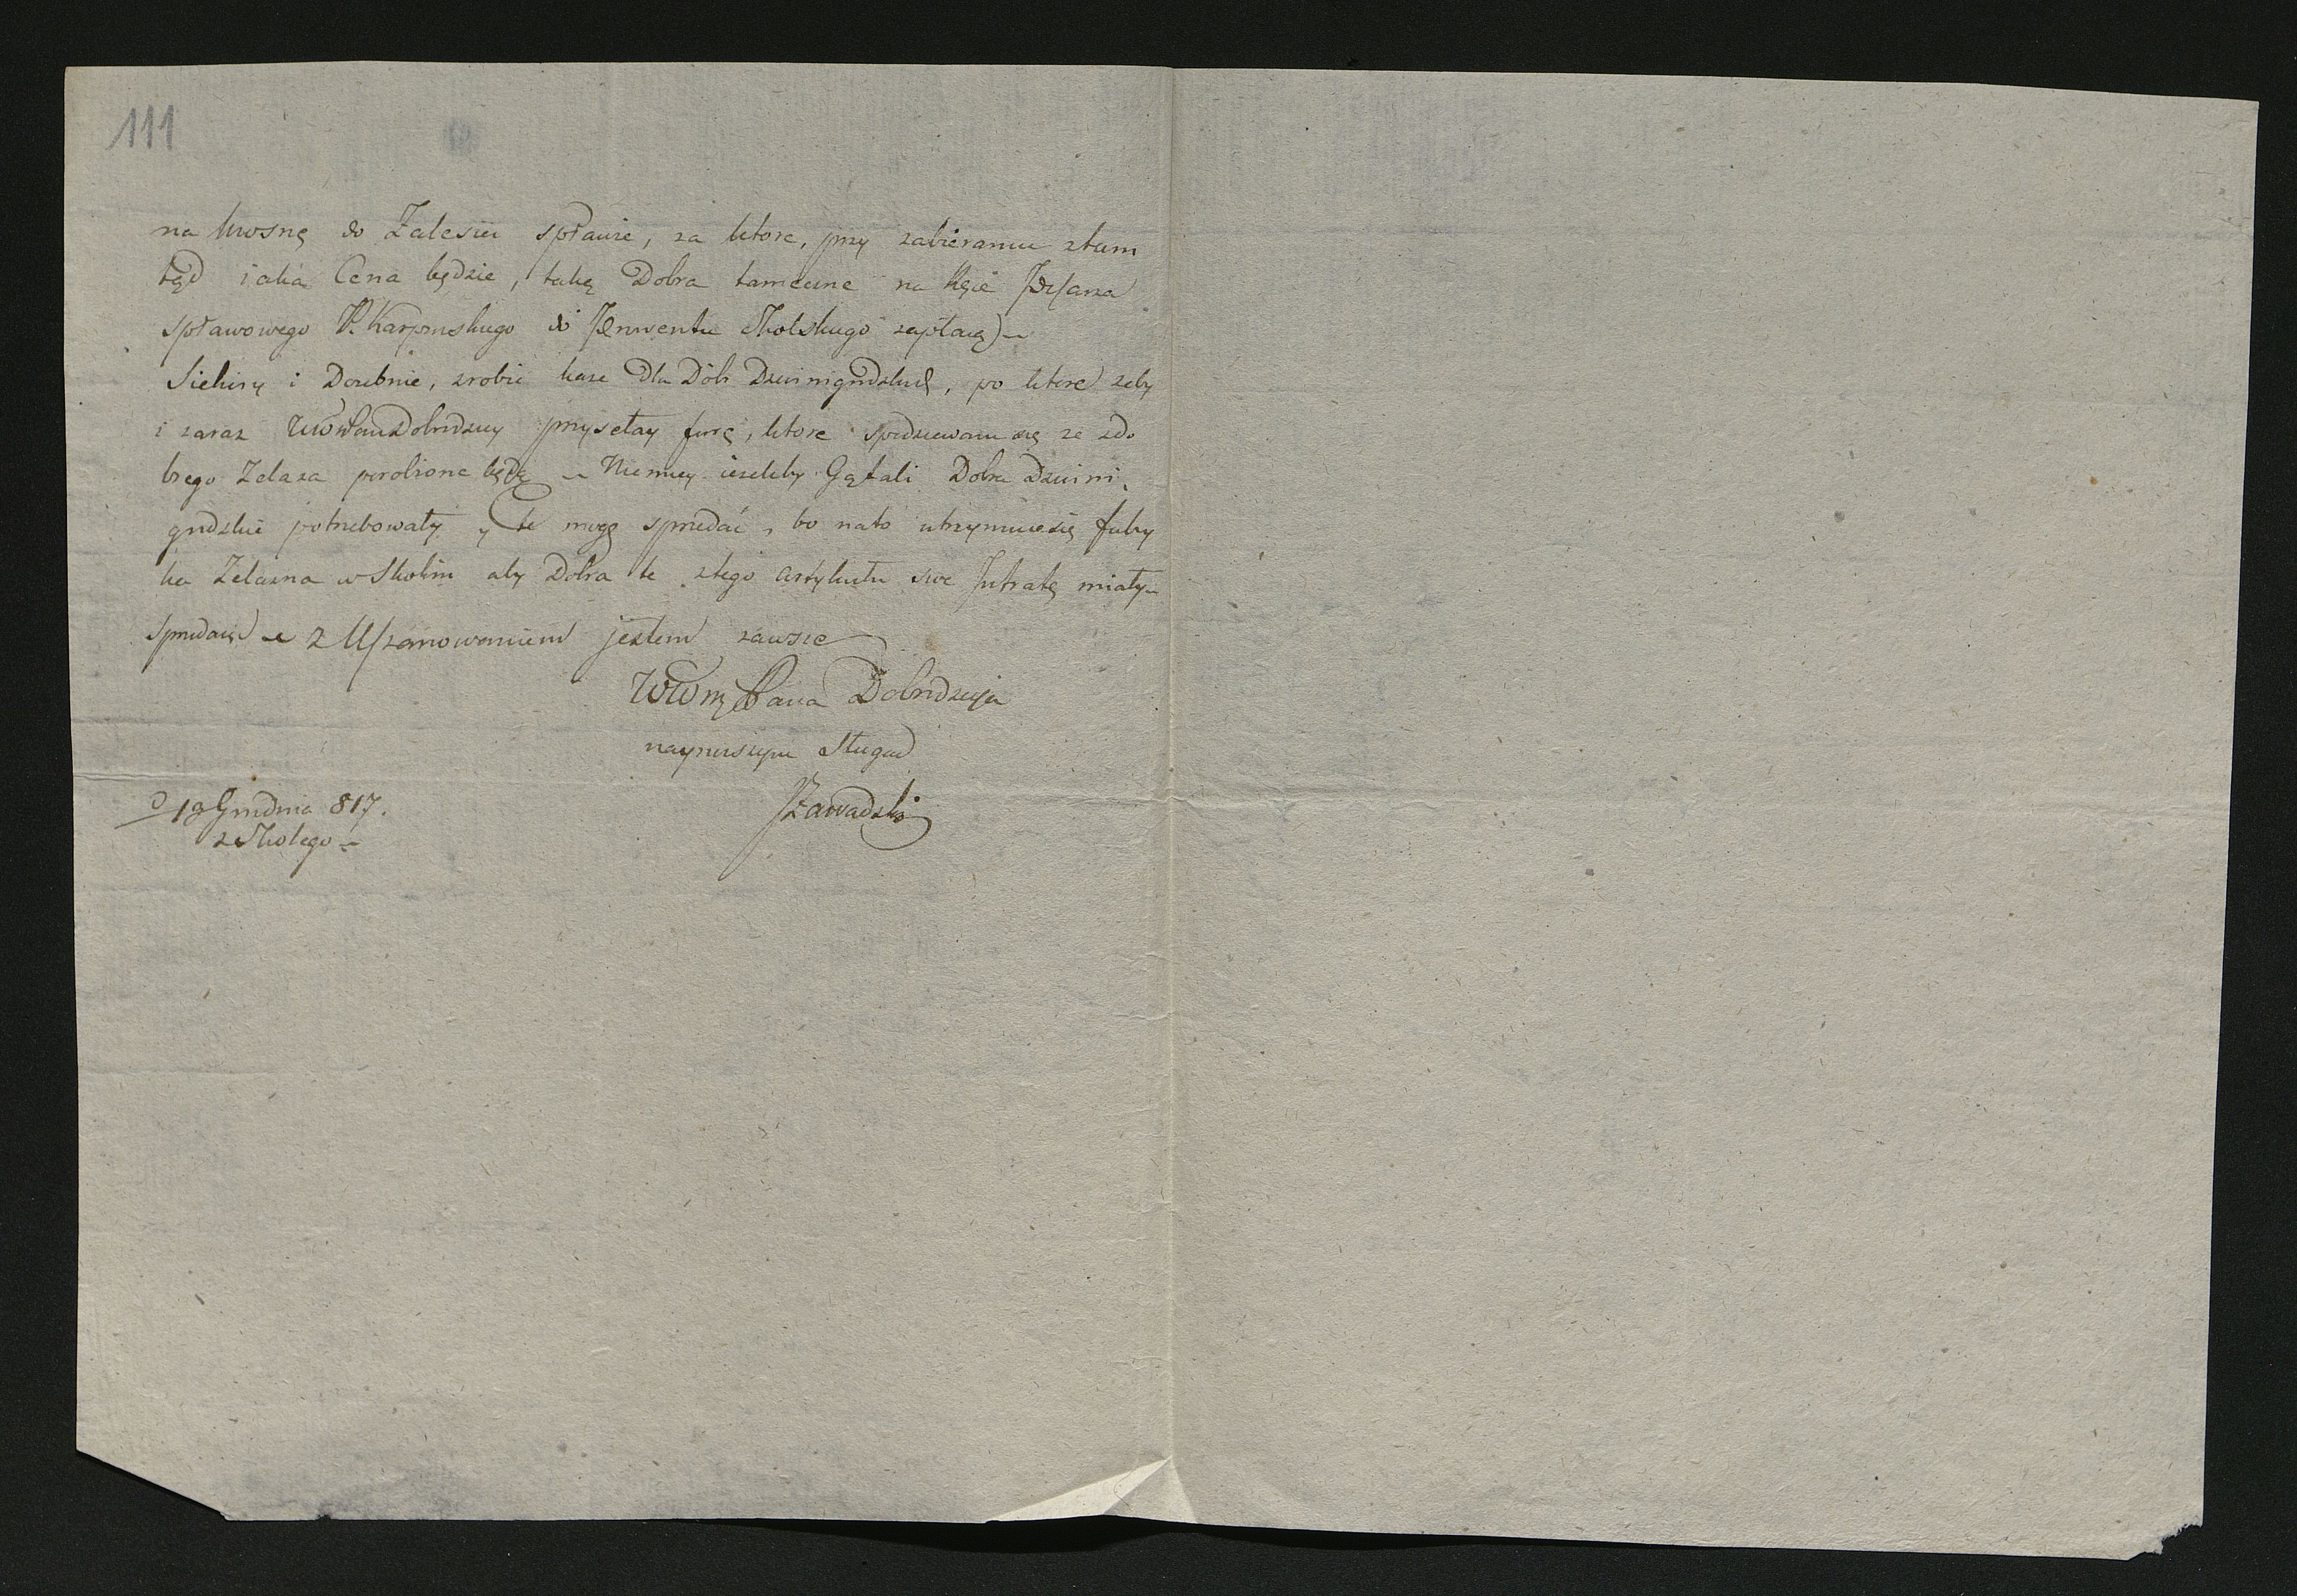 111
na wiosnę do Zalesiu spławie, za ktore, przy zabieraniu ztam
tąd iaka Cena będzie, taką Dobra tameczne na Ręce Pisarza
spławowego P. Karpinskiego do Prowentu Skolskiego zapłacą
Siekiry i Dzubnie, zrobić każe Dla Dóbr Dzwinigrodzkich, po ktore żeby
i zaraz WoWPan Dobrodziey przysełay furę, ktore spodziewam się że zdo
brego Zelaza porobione będą Niemniey ieżeliby Gątali Dobra Dzwini
grodzkie potrzebowały, te mogę sprzedać, bo nato utrzymuie się fabry
ka Zelazna w Skolim aby Dobra te ztego artykułu swe Jntratę miały
sprzedaię z Uszanowaniem jestem zawsze
WWmę Pana Dobrodzieja
nayniższym Sługą
JZawadzki
D 19 Grudnia 817.
z Skolego